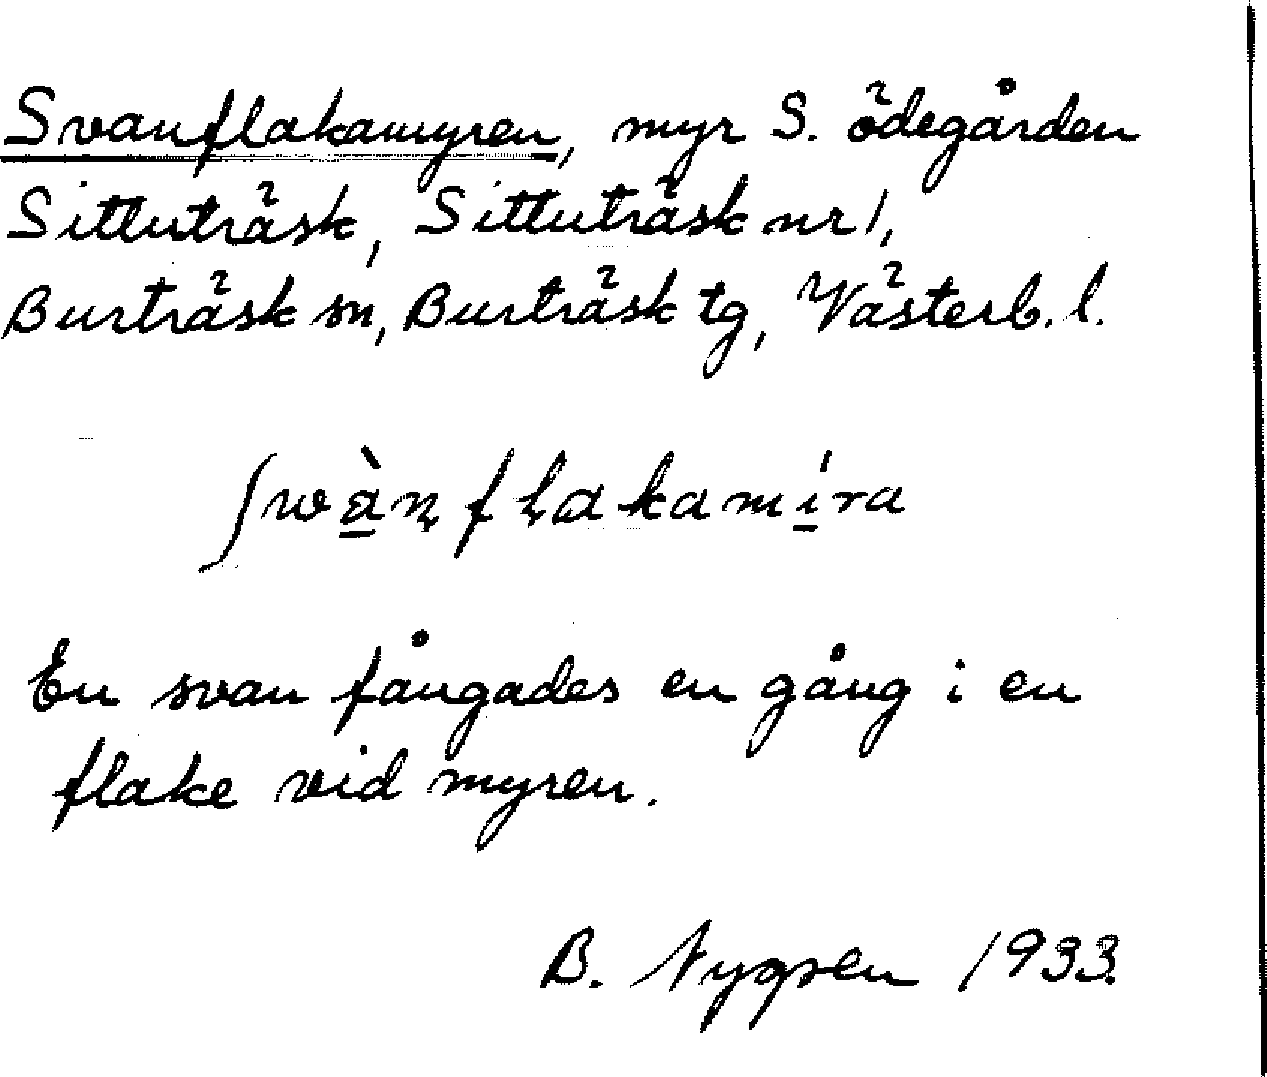 Svanflakamyren, myr S. ödegården
Sittuträsk, Sittuträsk nr 1,
Burträsk sn, Burträsk tg, Västerb. l.
ʃwàn̥flakamíra
En svan fångades en gång i en
flake vid myren.
B. Nygren 1933.